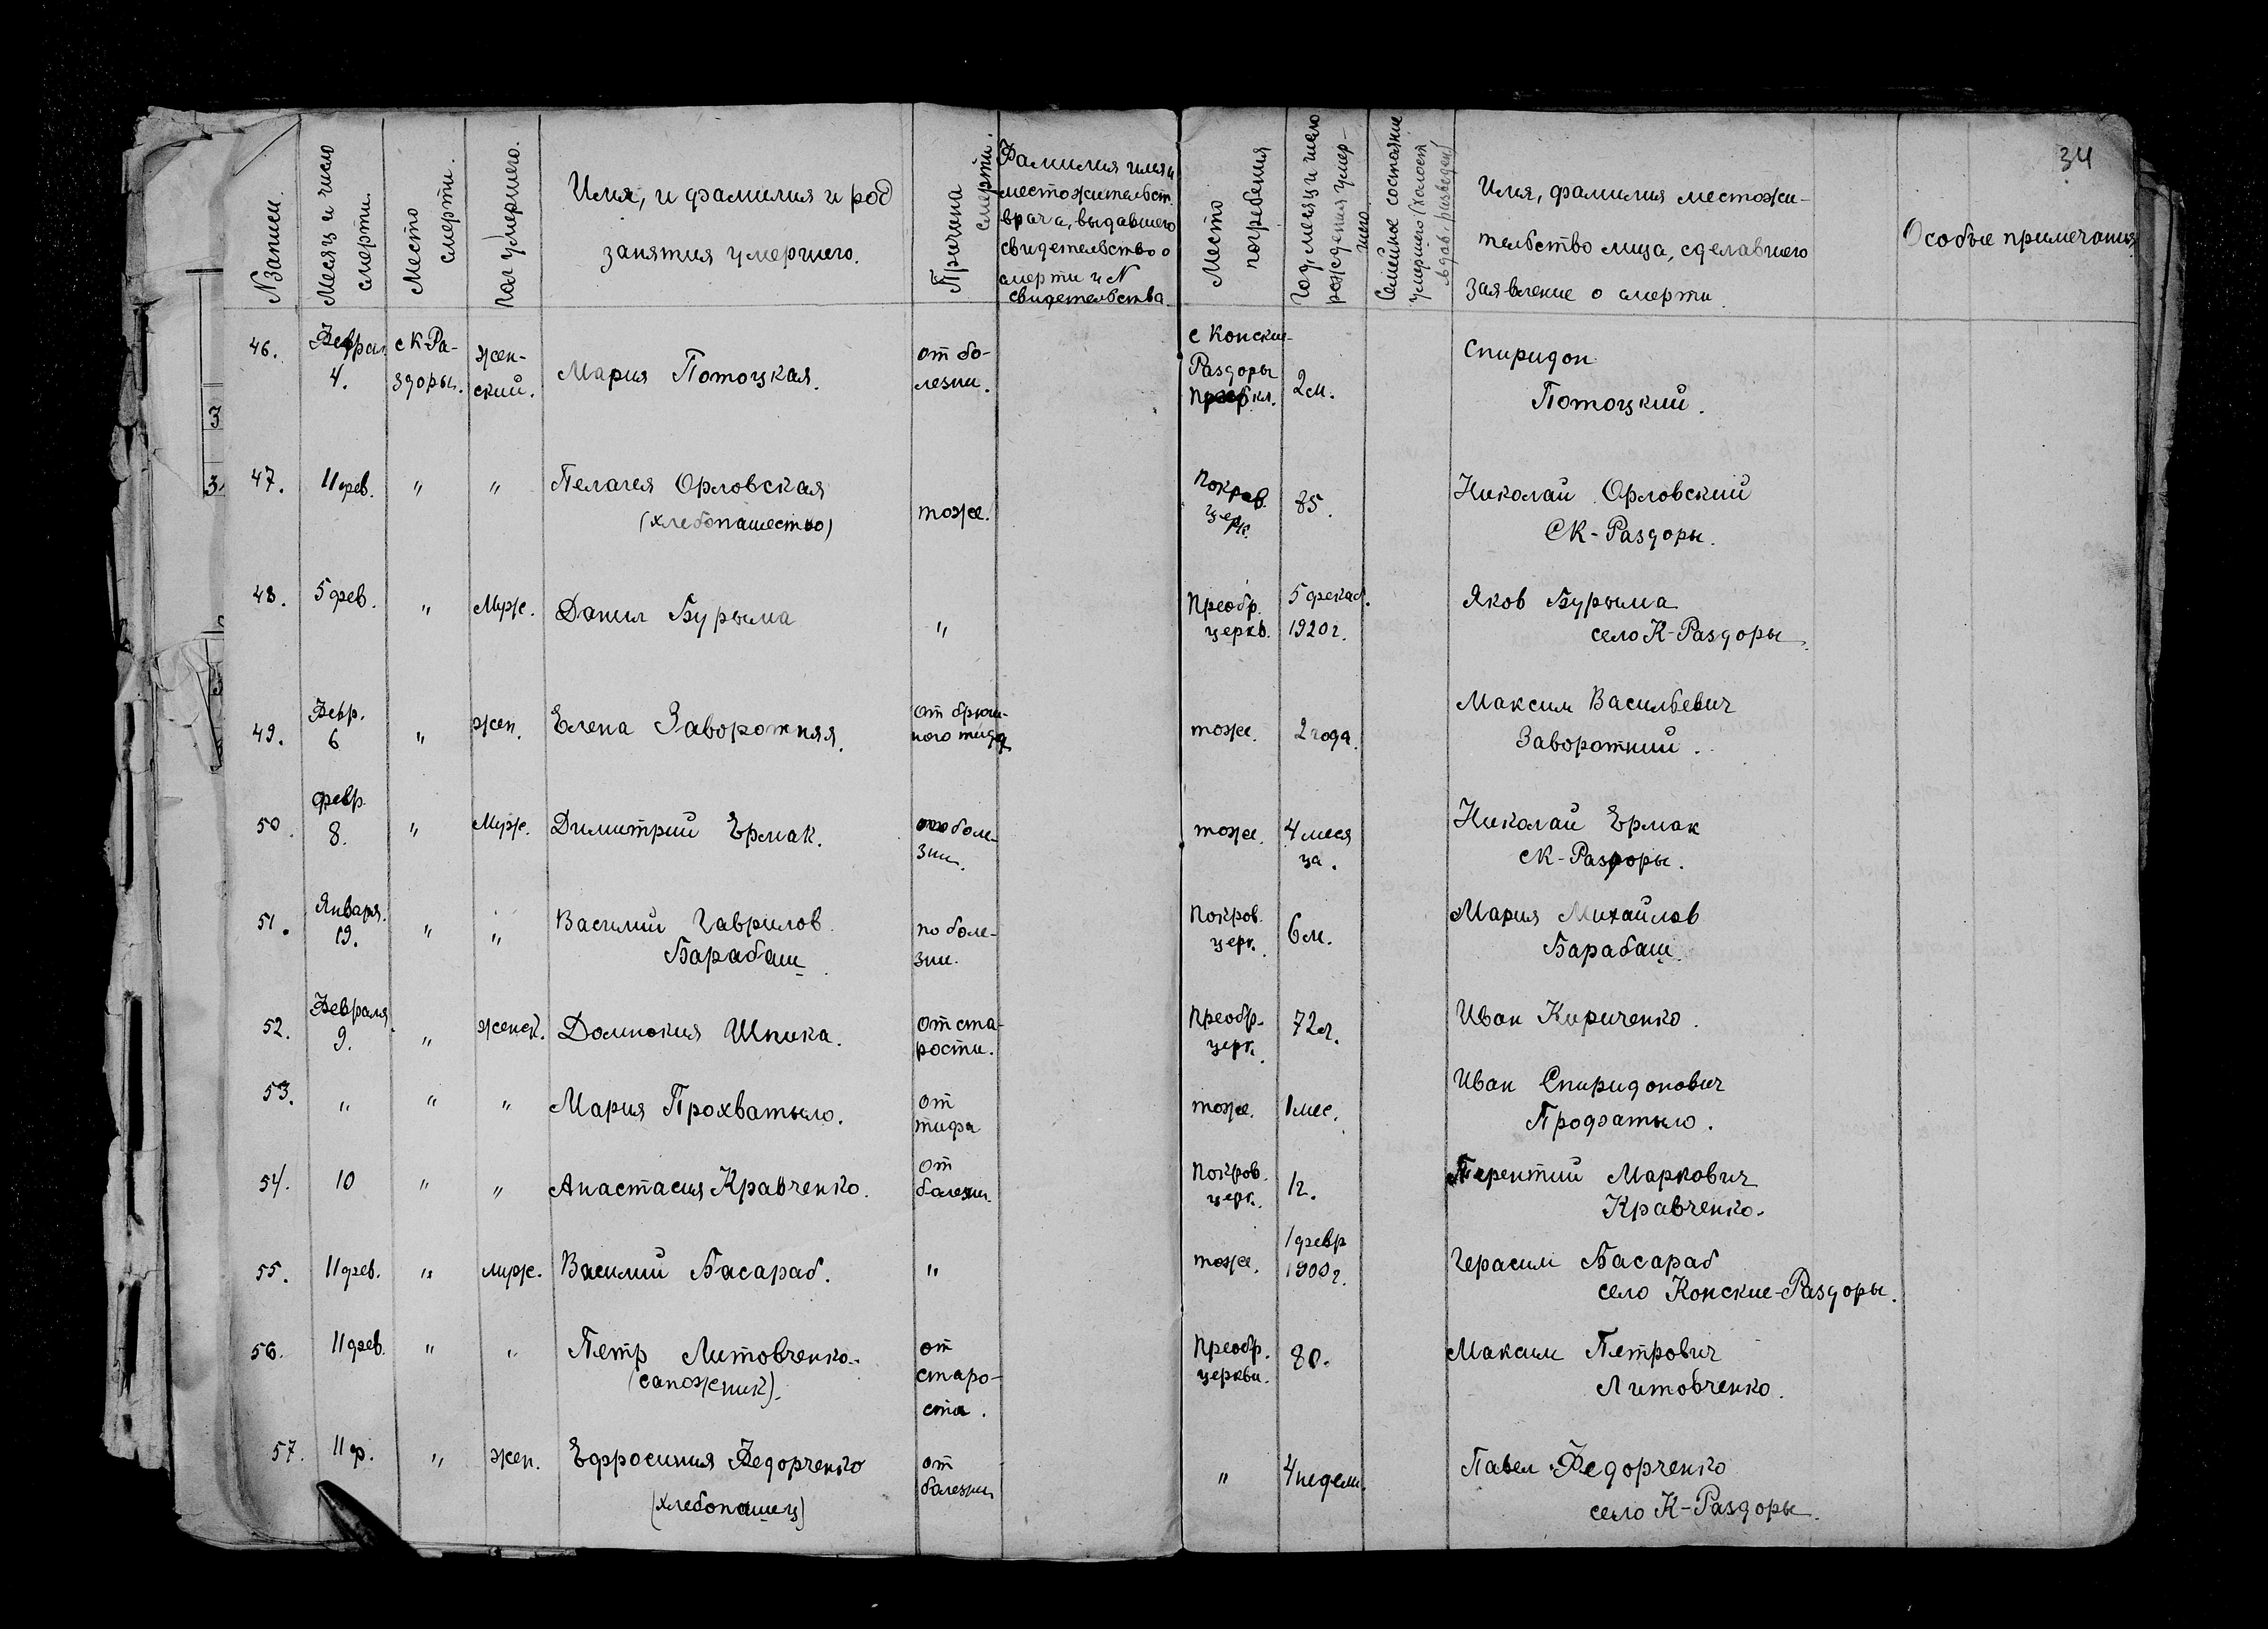 34
N Записи.
Месяц и число
смерти.
Место
смерти.
Пол умершего.
Имя, и фамилия и род
занятия умершего.
Причина
смерти.
Фамилия имя и
местожительст.
врача, выдавшего
свидетельство о
смерти и N
свидетельства
Место
погребения
Год, месяц и число
рождения умер-
шего
Семейное состояние
умершего (холост
вдов, разведен)
Имя, фамилия местожи-
тельство лица, сделавшего
заявление о смерти.
Особые примечания
46. Феврал с К-Ра- жен- Мария Потоцкая. от бо- с Конские- 2 м. Спиридон
4. здоры. ский. лезни. Раздоры Потоцкий.
47. 11 фев. " " Пелагея Орловская тоже. Покров. 85. Николай Орловский
(хлебопашество) церк. СК-Раздоры.
48. 5 фев. " Муж. Данил Бурыма " Преобр. 5 декаб. Яков Бурыма
церкв. 1920 г. село К-Раздоры.
49. Февр. " жен. Елена Заворотняя. от брюш- тоже. 2 года. Максим Васильевич
6 ного тифа Заворотний.
50. февр. " Муж. Димитрий Ермак. боле- тоже. 4 меся Николай Ермак
8. зни. ца. СК-Раздоры.
51. Января. " " Василий Гаврилов по боле- Покров. 6 м. Мария Михайлов
19. Барабаш зни. церк. Барабаш
52. Февраля " женск. Домнокия Шпика. от ста- Преобр- 72 г. Иван Кириченко.
9. рости. церк.
53. " " " Мария Прохватыло. от тоже. 1 мес. Иван Спиридонович
тифа Профатыло.
54. 10 " " Анастасия Кравченко. от Покров. 1 г. Терентий Маркович
болезни. церк. Кравченко.
55. 11 фев. " муж. Василий Басараб. " тоже. 1 февр Герасим Басараб
1900 г. село Конские-Раздоры.
56. 11 фев. " " Петр Литовченко. от Преобр. 80. Максим Петрович
(сапожник). старо- церкви. Литовченко.
сти.
57. 11 ф. " жен. Ефросиния Федорченко от " 4 недели. Павел Федорченко
(хлебопашец) болезни село К-Раздоры.